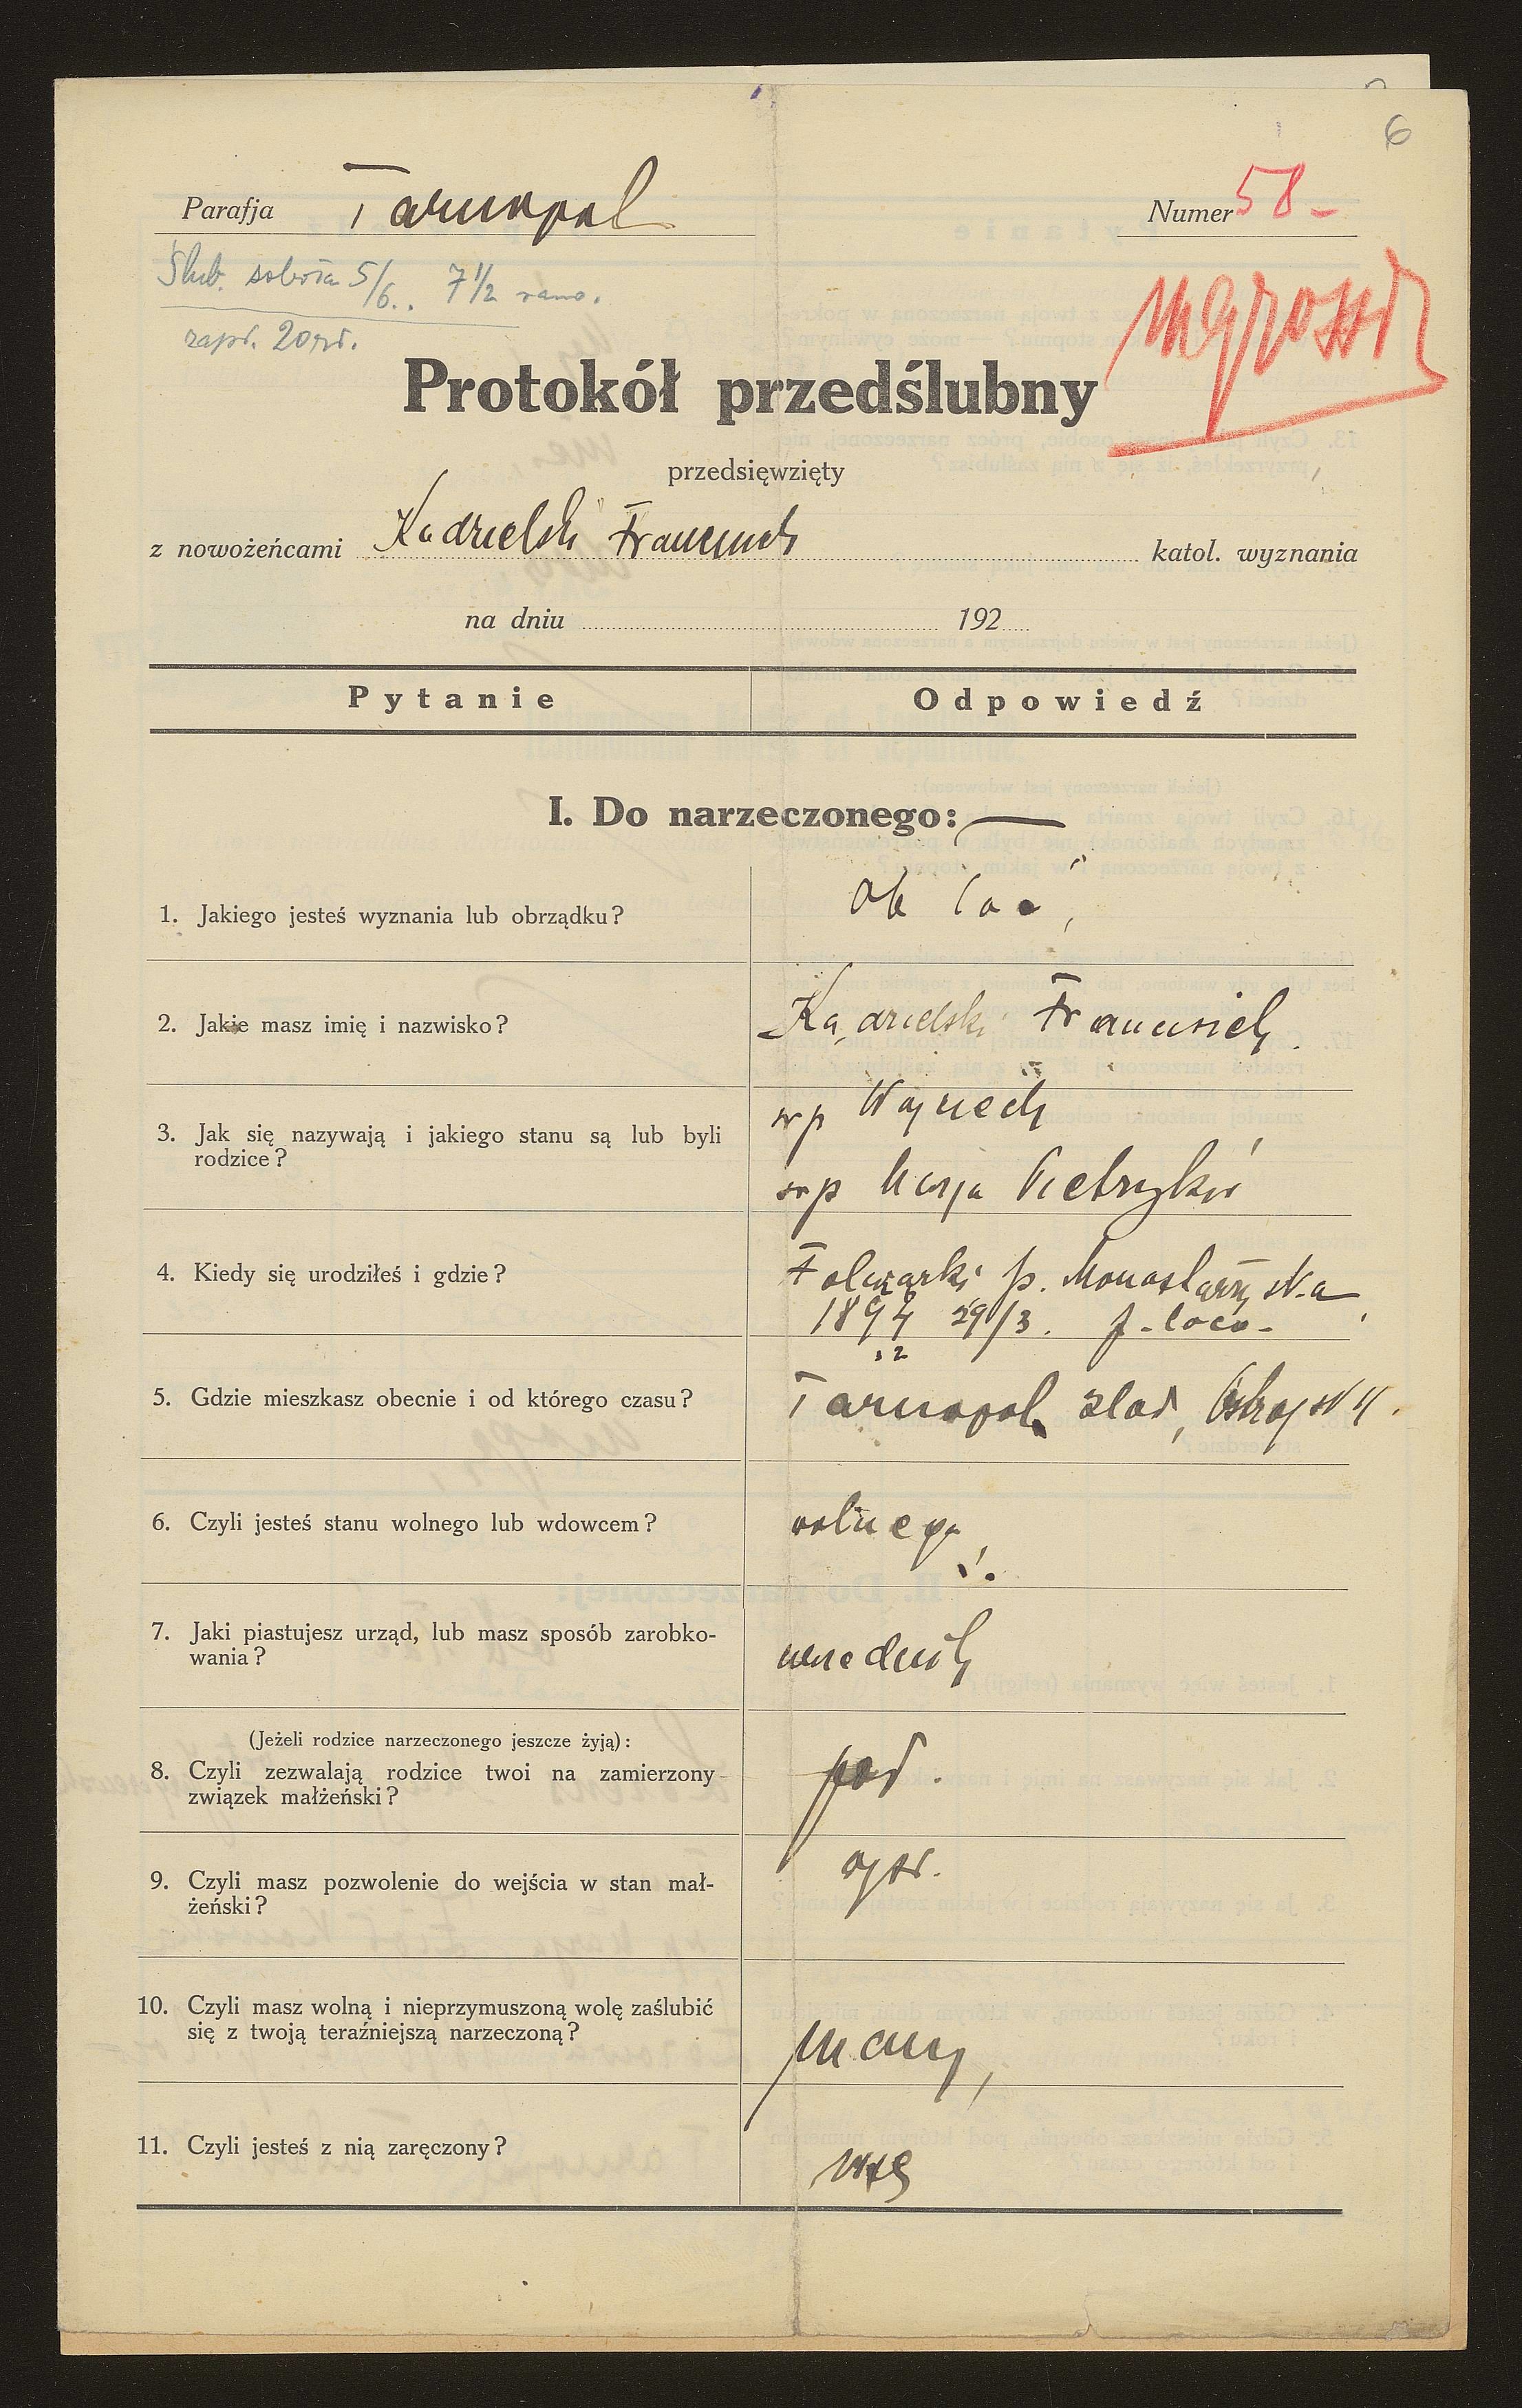 6
Parafja Tarnopol
Numer 58 -
Ślub. sobota 5/6.. 7 1/2 rano.
zapł. 20 zł.
Protokół przedślubny
przedsięwzięty
z nowożeńcami Kądzielski Franciszek katol. wyznania
na dniu 192
Pytanie Odpowiedź
I. Do narzeczonego:
1. Jakiego jesteś wyznania lub obrządku?
ob łać
2. Jakie masz imię i nazwisko?
Kądzielski Franciszek
3. Jak się nazywają i jakiego stanu są lub byli
rodzice?
śp Wojciech
śp Marja
4. Kiedy się urodziłeś i gdzie?
Folwarki p. Monasterzyska
1894 29/3. p - loco -
5. Gdzie mieszkasz obecnie i od którego czasu?
Tarnopol
6. Czyli jesteś stanu wolnego lub wdowcem?
wolnego
7. Jaki piastujesz urząd, lub masz sposób zarobko-
wania?
urzednik
(Jeżeli rodzice narzeczonego jeszcze żyją):
8. Czyli zezwalają rodzice twoi na zamierzony
związek małżeński?
9. Czyli masz pozwolenie do wejścia w stan mał-
żeński?
10. Czyli masz wolną i nieprzymuszoną wolę zaślubić
się z twoją teraźniejszą narzeczoną?
mam
11. Czyli jesteś z nią zaręczony?